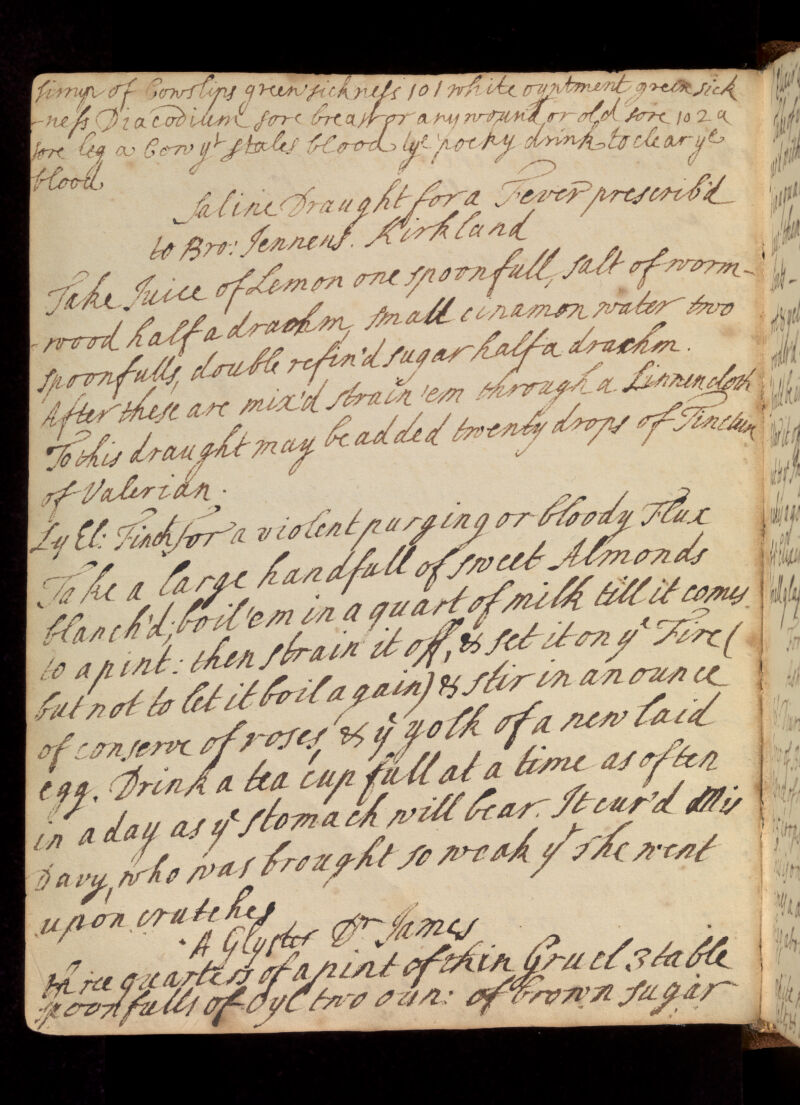 Sirrup of Cowslips green sickness 101 white oyntment green sick
-ness Diacodium sore breast or any wound or old sore 102 a
sore leg a Cow yt stales blood lye pocky drink to clear ye
blood
Saline Draught for a Fever prescrib'd
to Bro: Jennens. Kirkland
Take Juice of Lemon one spoonfull, salt of worm-
-wood half a drachm, small cinamon water two
spoonfulls, double refin'd sugar half a drachm.
After these are mix'd strain 'em through a Linnen cloth
To this draught may be added twenty drops of Tincture
of Valerian.
Ly El: Finch for a violent purging or bloody Flux
Take a large handfull of sweet Almonds
blanch'd; boil 'em in a quart of milk till it comes
to a pint: then strain it off, & set it on ye Fire (
but not to let it boil again) & stir in an ounce
of conserve of roses, & ye yolk of a new laid
egg. Drink a tea cup full at a time as often
in a day as yr stomach will bear. It cur'd Mis
Davy, who was brought so weak yt she went
upon crutches
A Glyster Dr James
three quarters of a pint of thin Gruel 3 table
spoonfulls of Oyl two oun: of brown sugar